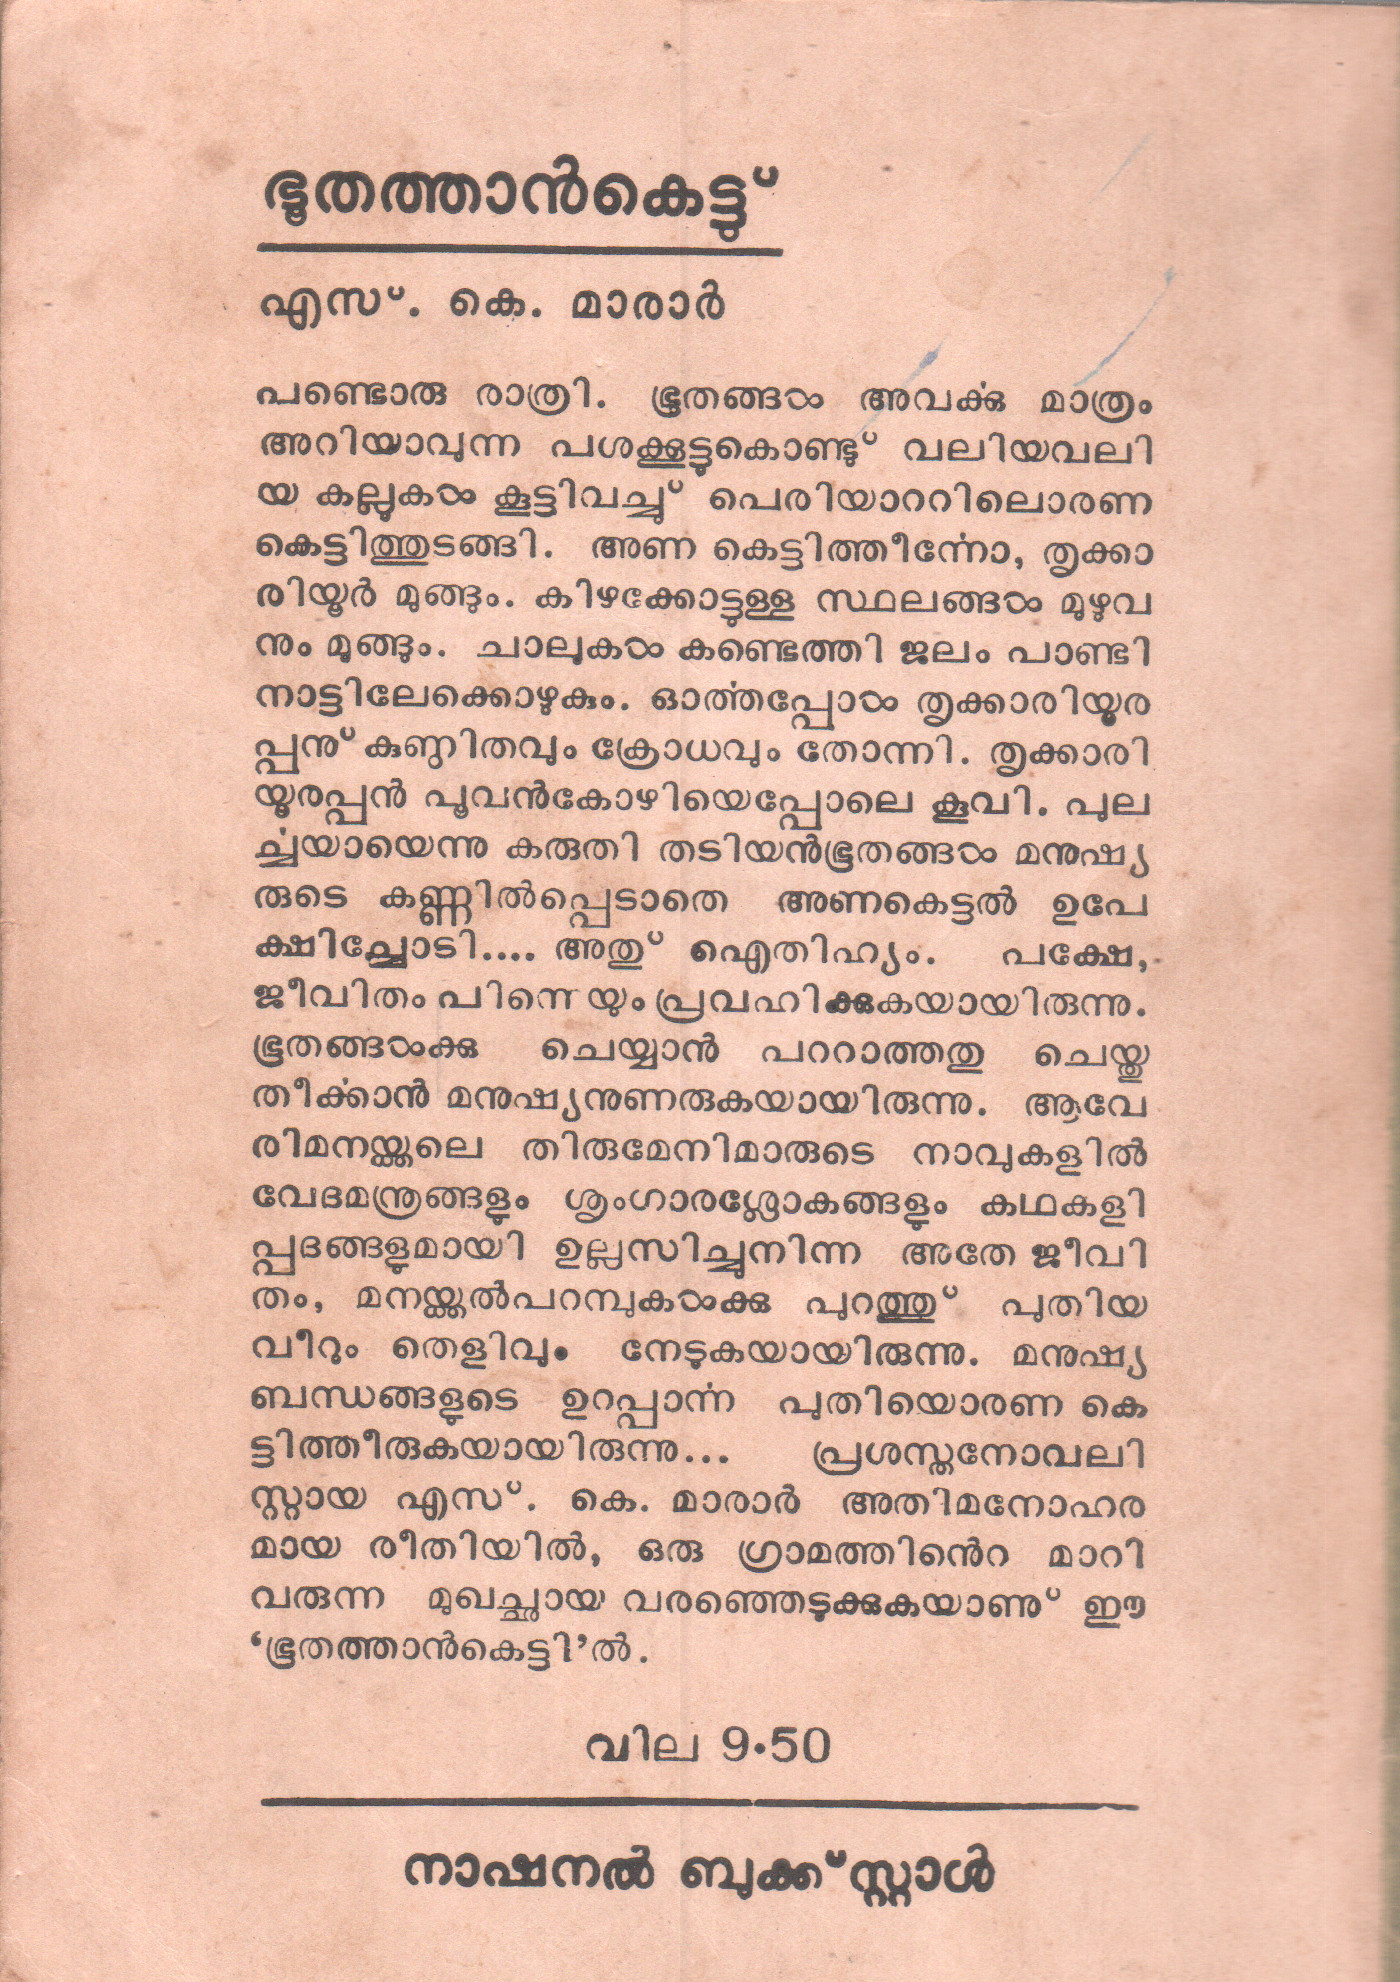 ഭൂതത്താൻകെട്ടു്
എസ്. കെ. മാരാർ
പണ്ടൊരു രാത്രി. ഭൂതങ്ങൾ അവൎക്കു മാത്രം
അറിയാവുന്ന പശക്കൂട്ടുകൊണ്ടു് വലിയവലി
യ കല്ലുകൾ കൂട്ടിവച്ചു് പെരിയാററിലൊരണ
കെട്ടിത്തുടങ്ങി. അണ കെട്ടിത്തീൎന്നോ, തൃക്കാ
രിയൂർ മുങ്ങും. കിഴക്കോട്ടുള്ള സ്ഥലങ്ങൾ മുഴുവ
നും മുങ്ങും. ചാലുകൾ കണ്ടെത്തി ജലം പാണ്ടി
നാട്ടിലേക്കൊഴുകും. ഓൎത്തപ്പോൾ തൃക്കാരിയൂര
പ്പനു് കുണ്ഠിതവും ക്രോധവും തോന്നി. തൃക്കാരി
യൂരപ്പൻ പൂവൻകോഴിയെപ്പോലെ കൂവി. പുല
ൎച്ചയായെന്നു കരുതി തടിയൻഭൂതങ്ങൾ മനുഷ്യ
രുടെ കണ്ണിൽപ്പെടാതെ അണകെട്ടൽ ഉപേ
ക്ഷിച്ചോടി.... അതു് ഐതിഹ്യം. പക്ഷേ,
ജീവിതം പിന്നെയും പ്രവഹിക്കുകയായിരുന്നു.
ഭൂതങ്ങൾക്കു ചെയ്യാൻ പററാത്തതു ചെയ്തു
തീൎക്കാൻ മനുഷ്യനുണരുകയായിരുന്നു. ആവേ
രിമനയ്ക്കലെ തിരുമേനിമാരുടെ നാവുകളിൽ
വേദമന്ത്രങ്ങളും ശൃംഗാരശ്ലോകങ്ങളും കഥകളി
പ്പദങ്ങളുമായി ഉല്ലസിച്ചുനിന്ന അതേ ജീവി
തം, മനയ്ക്കൽപറമ്പുകൾക്കു പുറത്തു് പുതിയ
വീറും തെളിവും നേടുകയായിരുന്നു. മനുഷ്യ
ബന്ധങ്ങളുടെ ഉറപ്പാൎന്ന പുതിയൊരണ കെ
ട്ടിത്തീരുകയായിരുന്നു... പ്രശസ്തനോവലി
സ്റ്റായ എസ്. കെ. മാരാർ അതിമനോഹര
മായ രീതിയിൽ, ഒരു ഗ്രാമത്തിൻെറ മാറി
വരുന്ന മുഖച്ഛായ വരഞ്ഞെടുക്കുകയാണു് ഈ
‘ഭൂതത്താൻകെട്ടി’ൽ.
വില 9·50
നാഷനൽ ബുക്ക്സ്റ്റാൾ